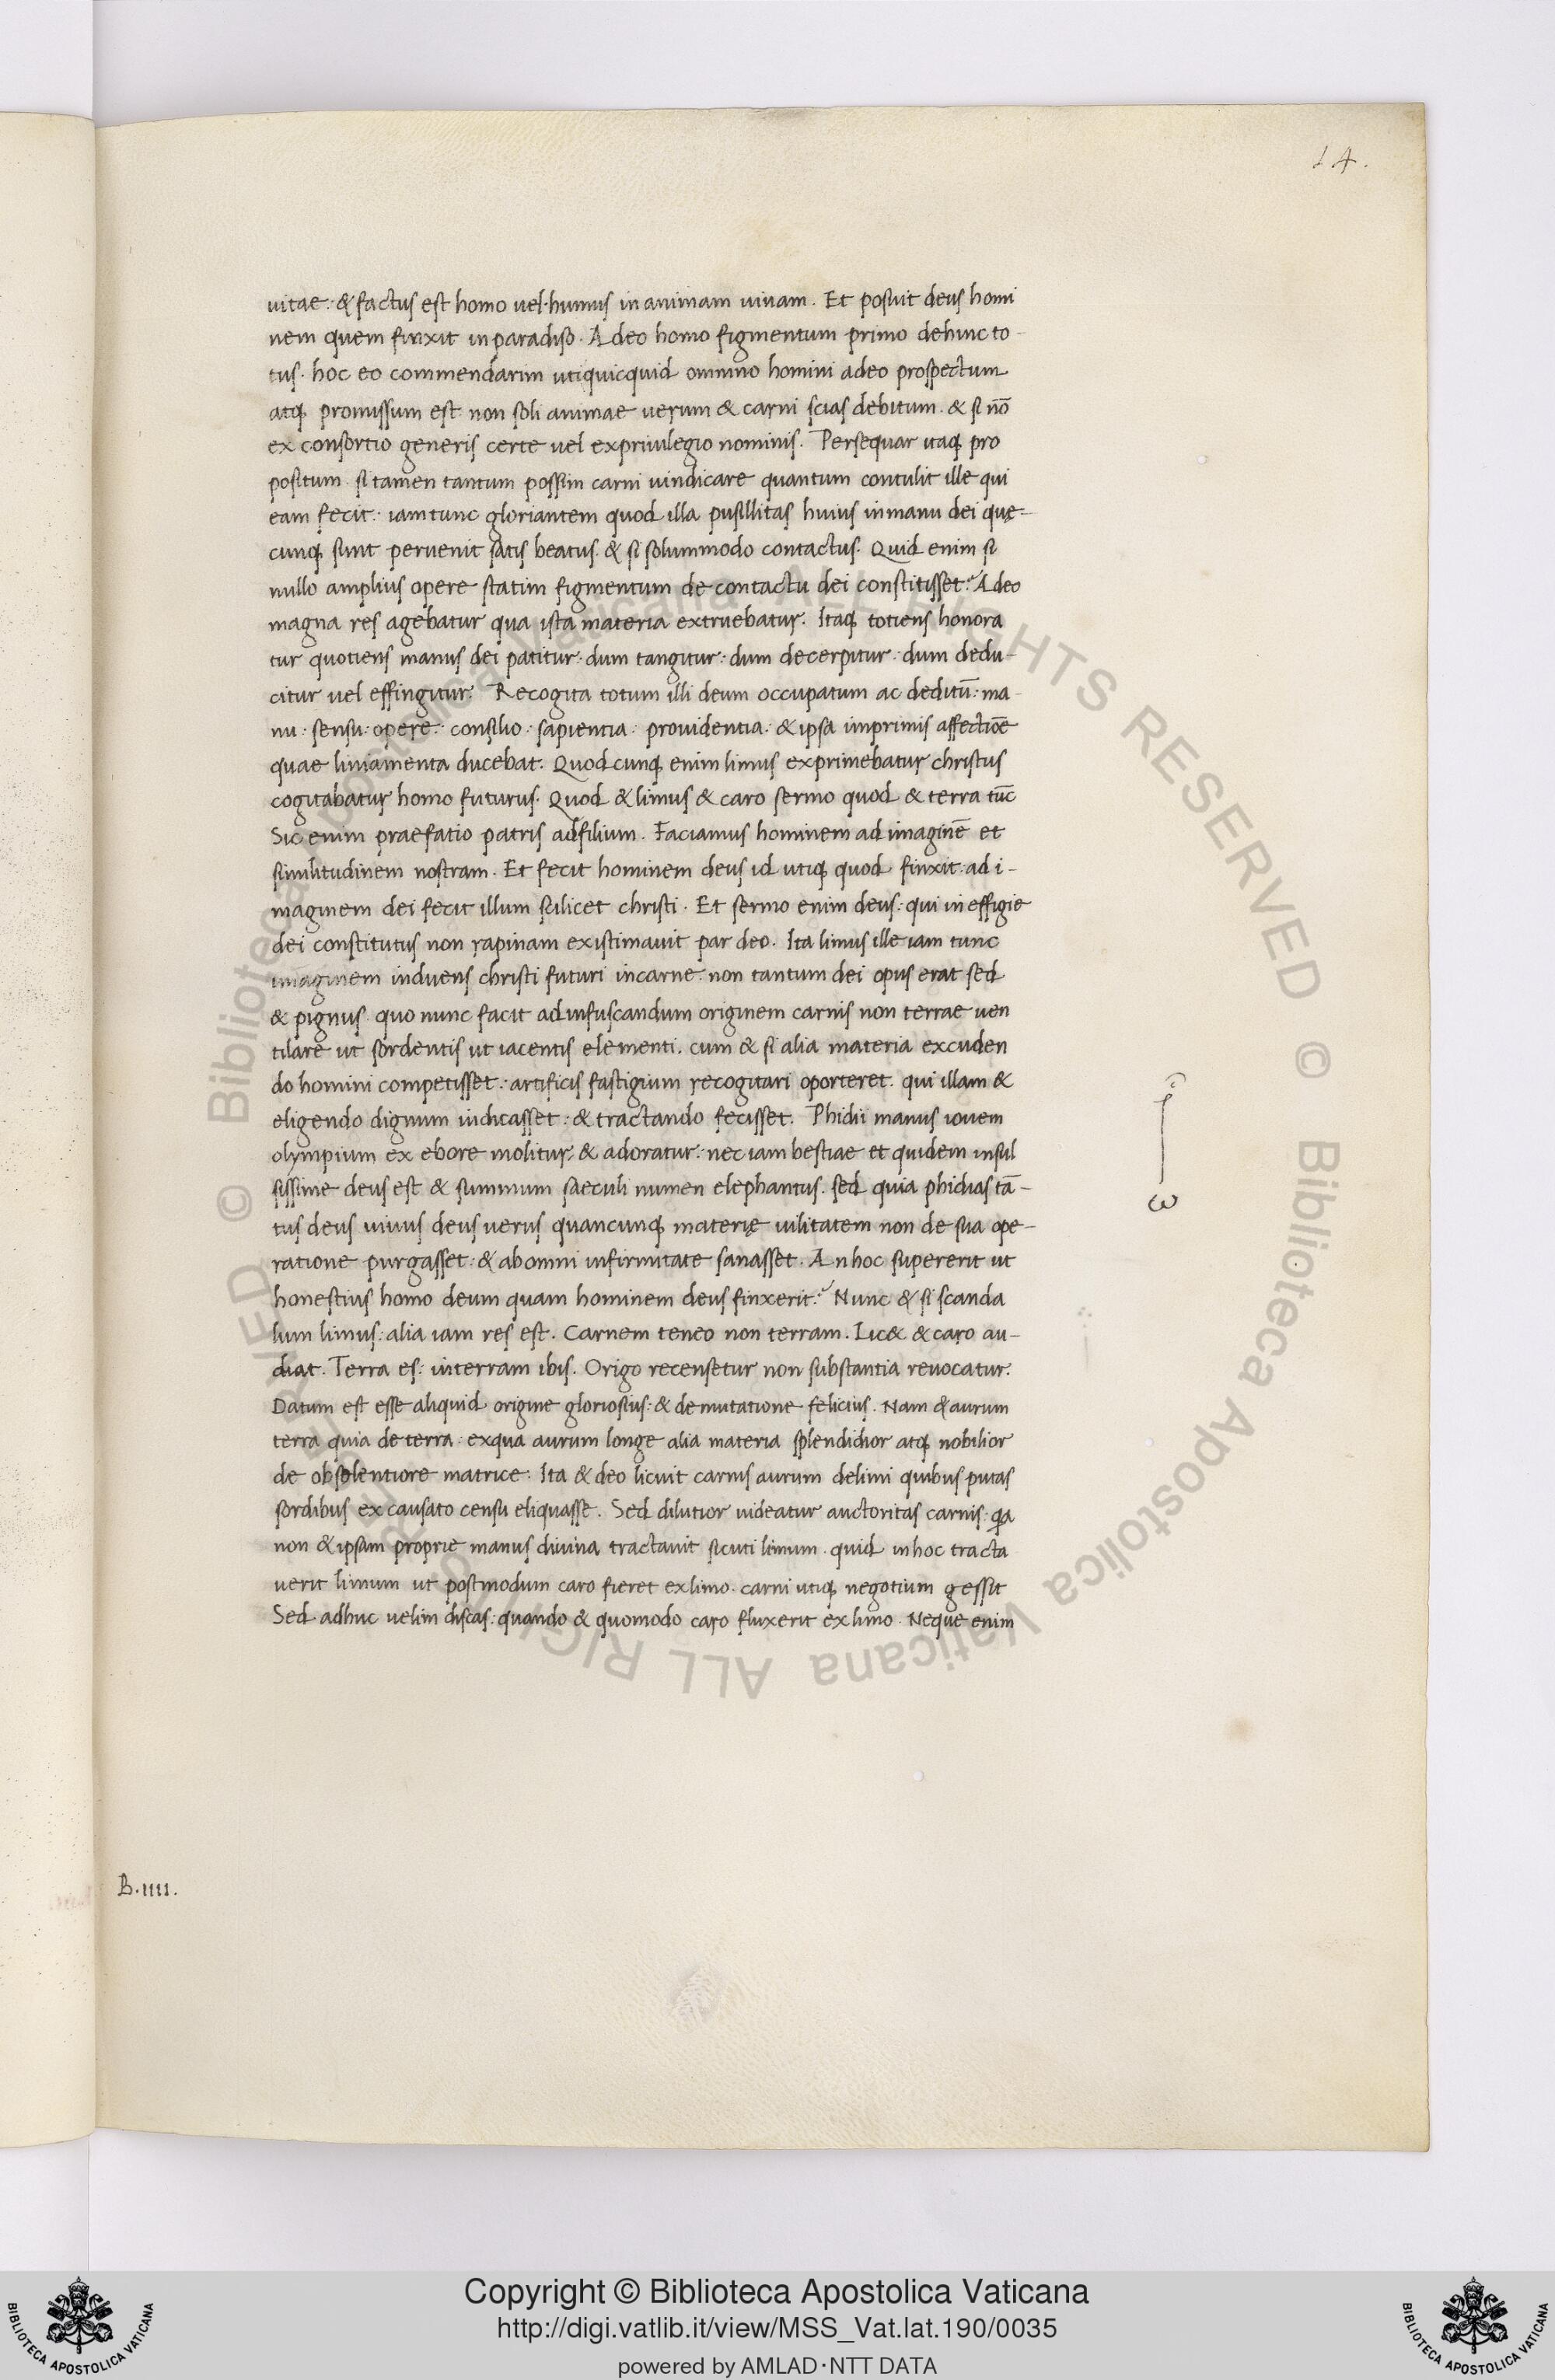 14.
vitae: & factus est homo vel humus in animam vivam. Et posuit deus homi
nem quem finxit in paradiso. Adeo homo figmentum primo dehinc to-
tus. hoc eo commendarim uti quicquid omnino homini a deo prospectum
atq promissum est non soli animae verum & carni scias debitum. & si nō
ex consortio generis certe vel ex privilegio nominis. Persequar itaq pro
positum si tamen tantum possim carni vindicare quantum contulit ille qui
eam fecit: iam tunc gloriantem quod illa pusillitas huius in manu dei quę-
cunq sunt pervenit satis beatus & si solummodo contactus. Quid enim si
nullo amplius opere statim figmentum de contactu dei constitisset? Adeo
magna res agebatur qua ista materia extruebatur. Itaq totiens honora
tur quotiens manus dei patitur: dum tangitur: dum decerpitur: dum dedu-
citur vel effingitur. Recogita totum illi deum occupatum ac deditū: ma-
nu: sensu: opere: consilio: sapientia: providentia: & ipsa imprimis affectiōe
quae liniamenta ducebat. Quodcunq enim limus exprimebatur christus
cogitabatur homo futurus. Quod & limus & caro sermo quod & terra tūc
Sic enim praefatio patris ad filium. Faciamus hominem ad imaginē et
similitudinem nostram. Et fecit hominem deus id utiq quod finxit: ad i-
maginem dei fecit illum scilicet christi. Et sermo enim deus: qui in effigie
dei constitutus non rapinam existimavit par deo. Ita limus ille iam tunc
imaginem induens christi futuri in carne: non tantum dei opus erat sed
& pignus. quo nunc facit ad infuscandum originem carnis non terrae ven
tilare ut sordentis ut iacentis elementi. cum & si alia materia excuden
do homini competisset: artificis fastigium recogitari oporteret. qui illam &
eligendo dignum iudicasset: & tractando fecisset. Phidii manus iovem
olympium ex ebore molitur, & adoratur: nec iam bestiae et quidem insul
sissime deus est & summum saeculi numen elephantus. sed quia phidias tā-
tus deus vivus deus verus quancunq materię vilitatem non de sua ope-
ratione purgasset: & ab omni infirmitate sanasset. An hoc supererit ut
honestius homo deum quam hominem deus finxerit? Nunc & si scanda
lum limus: alia iam res est. Carnem teneo non terram. Lic& & caro au-
diat. Terra es: in terram ibis. Origo recensetur non substantia revocatur.
Datum est esse aliquid origine gloriosius: & demutatione felicius. Nam & aurum
terra quia de terra: ex qua aurum longe alia materia splendidior atq nobilior
de obsolentiore matrice. Ita & deo licuit carnis aurum de limi quibus putas
sordibus excausato censu eliquasse. Sed dilutior videatur auctoritas carnis: qa
non & ipsam proprie manus divina tractavit sicuti limum. quid in hoc tracta
verit limum ut postmodum caro fieret ex limo. carni utiq negotium gessit
Sed adhuc velim discas: quando & quomodo caro fluxerit ex limo. Neque enim
B.IIII.
© Biblioteca Apostolica Vaticana ALL RIGHTS RESERVED
Copyright © Biblioteca Apostolica Vaticana
http://digi.vatlib.it/view/MSS_Vat.lat.190/0035
powered by AMLAD·NTT DATA
BIBLIOTECA APOSTOLICA VATICANA
BIBLIOTECA APOSTOLICA VATICANA